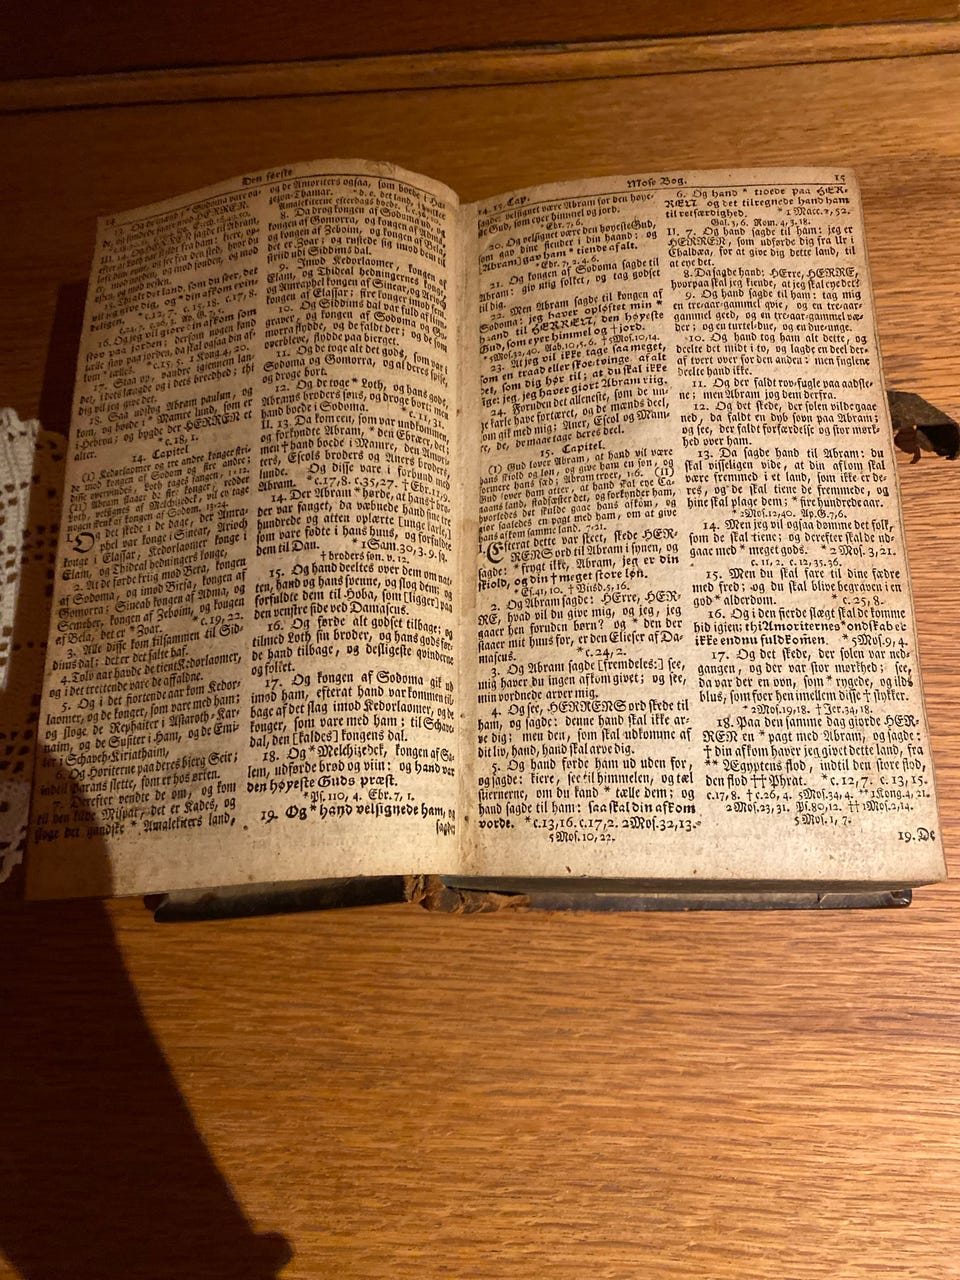 14
Den første
13. Og
HERREN.
14.
kom, og boede i Mamre lund, som er
i Hebron; og bygde der HERREN et
alter. * c. 18, 1.
14. Capitel
Og det skede i de dage, der Amra-
phel var konge i Sinear, Arioch
konge i Elassar, Kedorlaomer konge i
Elam, og Thideal hedningernes konge,
2. At de førde krig mod Bera, kongen
af Sodoma, og imod Birsa, kongen af
Gomorra; Sineab kongen af Adma, og
Semeber, kongen af Zeboim, og kongen
af Bela, det er * Zoar. * c. 19, 22.
3. Alle disse kom tilsammen til Sid-
dims dal: det er det salte haf.
4. Tolv aar havde de tient Kedorlaomer,
og i det trettende vare de affaldne.
5. Og i det fiortende aar kom Kedor-
laomer, og de konger, som vare med ham;
og sloge de Rephaiter i Astaroth-Kar-
naim, og de Susiter i Ham, og de Emi-
ter i Schaveh-Kiriathaim,
6. Og Horiterne paa deres bierg Seir;
indtil Parans slette, som er hos ørken.
7. Derefter vendte de om, og kom
til den kilde Mispat, det er Kades, og
sloge det gandske * Amalekiters land,
og de Amoriters ogsaa, som boede i Ha-
zezon-Thamar.
8. Da drog kongen af Sodoma, og
kongen af Gomorra, og kongen af Adma,
og kongen af Zeboim, og kongen af Bela,
det er Zoar; og rustede sig imod dem til
strid udi Siddims dal.
9. Imod Kedorlaomer, kongen af
Elam, og Thideal hedningernes konge, og
Amraphel kongen af Sinear, og Arioch
kongen af Elassar; fire konger imod fem.
10. Og Siddims dal var fuld af liim-
graver, og kongen af Sodoma og Go-
morra flydde, og de faldt der; og de som
overbleve, flydde paa bierget.
11. Og de toge alt det gods, som var i
Sodoma og Gomorra, og al deres spise,
og droge bort.
12. Og de toge * Loth, og hans gods,
Abrams broders søns, og droge bort; men
hand boede i Sodoma. * c. 11, 31.
II. 13. Da kom een, som var undkommen,
og forkyndte Abram, * den Ebræer, det;
men † hand boede i Mamre, den Amori-
ters, Escols broders og Aners broders,
lunde. Og disse vare i forbund med
Abram. * c. 17, 8. c. 35, 27. † Ebr. 11, 9.
14. Der Abram * hørde, at hans † bro-
der var fanget, da væbnede hand sine tre
hundrede og atten oplærte [unge karle,]
som vare fødte i hans huus, og forfulgte
dem til Dan. * 1 Sam. 30, 3. 9. 18.
† broders søn. v. 12.
15. Og hand deelte over dem om nat-
ten, hand og hans svenne, og slog dem; og
forfulde dem til Hoba, som [ligger] paa
den venstre side ved Damascus.
16. Og førde alt godset tilbage; og
tilmed Loth sin broder, og hans gods før-
de hand tilbage, og desligeste qvinderne
og folket.
17. Og kongen af Sodoma gik ud
imod ham, efterat hand var kommen til-
bage af det slag imod Kedorlaomer, og de
konger, som vare med ham; til Schave-
dal, den [kaldes] kongens dal.
18. Og * Melchizedek, kongen af Sa-
lem, udførde brød og viin: og hand var
den høyeste Guds præst.
* Ps. 110, 4. Ebr. 7, 1.
19. Og * hand velsignede ham, og
sagde
14. 15. Cap.
Mose Bog.
15
sagde: velsignet være Abram for den høye-
ste Gud, som eyer himmel og jord.
* Ebr. 7, 6.
20. Og velsignet være den høyeste Gud,
som gav dine fiender i din haand; og
[Abram] gav ham * tiende af alt.
* Ebr. 7, 2. 4. 6.
21. Og kongen af Sodoma sagde til
Abram: giv mig folket, og tag godset
til dig.
22. Men Abram sagde til kongen af
Sodoma; jeg haver opløftet min *
haand til HERREN, den høyeste
Gud, som eyer himmel og † jord.
23. At jeg vil ikke tage saa meget,
som en traad eller skoetvinge, af alt
det, som dig hør til; at du skal ikke
sige: jeg, jeg haver giort Abram riig.
24. Foruden det alleneste, som de un-
ge karle have fortæret, og de mænds deel,
som gik med mig; Aner, Escol og Mam-
re, de maae tage deres deel.
15. Capitel.
(I) Gud lover Abram, at hand vil være
hans skiold og løn, og give ham en søn, og
formere hans sæd; Abram troer, 1-6. (II)
Gud lover ham atter, at hand skal eye Ca-
naans land, stadfæster det, og forkynder ham,
hvorledes det skulde gaae hans afkom, og
giør saaledes en pagt med ham, om at give
hans afkom samme land. 7-21.
I. Efterat dette var skeet, skede HER-
RENS ord til Abram i synen, og
sagde: * frygt ikke, Abram, jeg er din
skiold, og din † meget store løn.
* Es. 41, 10. † Viisd. 5, 16.
2. Og Abram sagde: HErre, HER-
RE, hvad vil du give mig, og jeg, jeg
gaaer hen foruden børn? og * den der
skal forestaae mit huus, er den Elieser af Da-
mascus. * c. 24, 2.
3. Og Abram sagde [fremdeles:] see,
mig haver du ingen afkom givet; og see,
min vordnede arver mig.
4. Og see, HERRENS ord skede til
ham, og sagde: denne hand skal ikke ar-
ve dig; men den, som skal udkomme af
dit liv, hand, hand skal arve dig.
5. Og hand førde ham ud uden for,
og sagde: kiere, see til himmelen, og tæl
stiernerne, om du kand * tælle dem; og
hand sagde til ham: saa skal din afkom
vorde. * c. 13, 16. c. 17, 2. 2 Mos. 32, 13.
5 Mos. 10, 22.
6. Og hand * troede paa HER-
REN og det tilregnede hand ham
til retfærdighed. * 1 Macc. 2, 52.
Gal. 3, 6. Rom. 4, 3. 18.
II. 7. Og hand sagde til ham: jeg er
HERREN, som udførde dig fra Ur i
Chaldæa, for at give dig dette land, til
at eye det.
8. Da sagde hand: HErre, HERRE,
hvorpaa skal jeg kiende, at jeg skal eye det?
9. Og hand sagde til ham: tag mig
en tre-aar-gammel qvie, og en tre-aar-
gammel geed, og en tre-aar-gammel væ-
der; og en turtel-due, og en due-unge.
10. Og hand tog ham alt dette, og
deelte det midt i to, og lagde en deel der-
af tvert over for den anden: men fuglene
deelte hand ikke.
11. Og der faldt rov-fugle paa aadsle-
ne; men Abram jog dem derfra.
12. Og det skede, der solen vilde gaae
ned, da faldt en dyb søvn paa Abram;
og see, der faldt forfærdelse og stor mørk-
hed over ham.
13. Da sagde hand til Abram: du
skal visseligen vide, at din afkom skal
være fremmed i et land, som ikke er de-
res, og de skal tiene de fremmede, og
hine skal plage dem; fire hundrede aar.
* 2 Mos. 12, 40. Ap. G. 7, 6.
14. Men jeg vil ogsaa dømme det folk,
som de skal tiene; og derefter skal de ud-
gaae med * meget gods. * 2 Mos. 3, 21.
c. 11, 2. c. 12, 35. 36.
15. Men du skal fare til dine fædre
med fred; og du skal blive begraven i en
god * alderdom. * c. 25, 8.
16. Og i den fierde slægt skal de komme
hid igien: thi Amoriternes * ondskab er
ikke endnu fuldkomen. * 5 Mos. 9, 4.
17. Og det skede, der solen var ned-
gangen, og der var stor mørkhed; see,
da var der en ovn, som * rygede, og ilds
blus, som foer hen imellem disse † stykker.
* 2 Mos. 19, 18. † Jer. 34, 18.
18. Paa den samme dag giorde HER-
REN en * pagt med Abram, og sagde:
† din afkom haver jeg givet dette land, fra
** Ægyptens flod, indtil den store flod,
den flod †† Phrat. * c. 12, 7. c. 13, 15.
c. 17, 8. † c. 26, 4. 5 Mos. 34, 4. ** 1 Kong. 4, 21.
2 Mos. 23, 31. Ps. 80, 12. †† 1 Mos. 2, 14.
5 Mos. 1, 7.
19. De